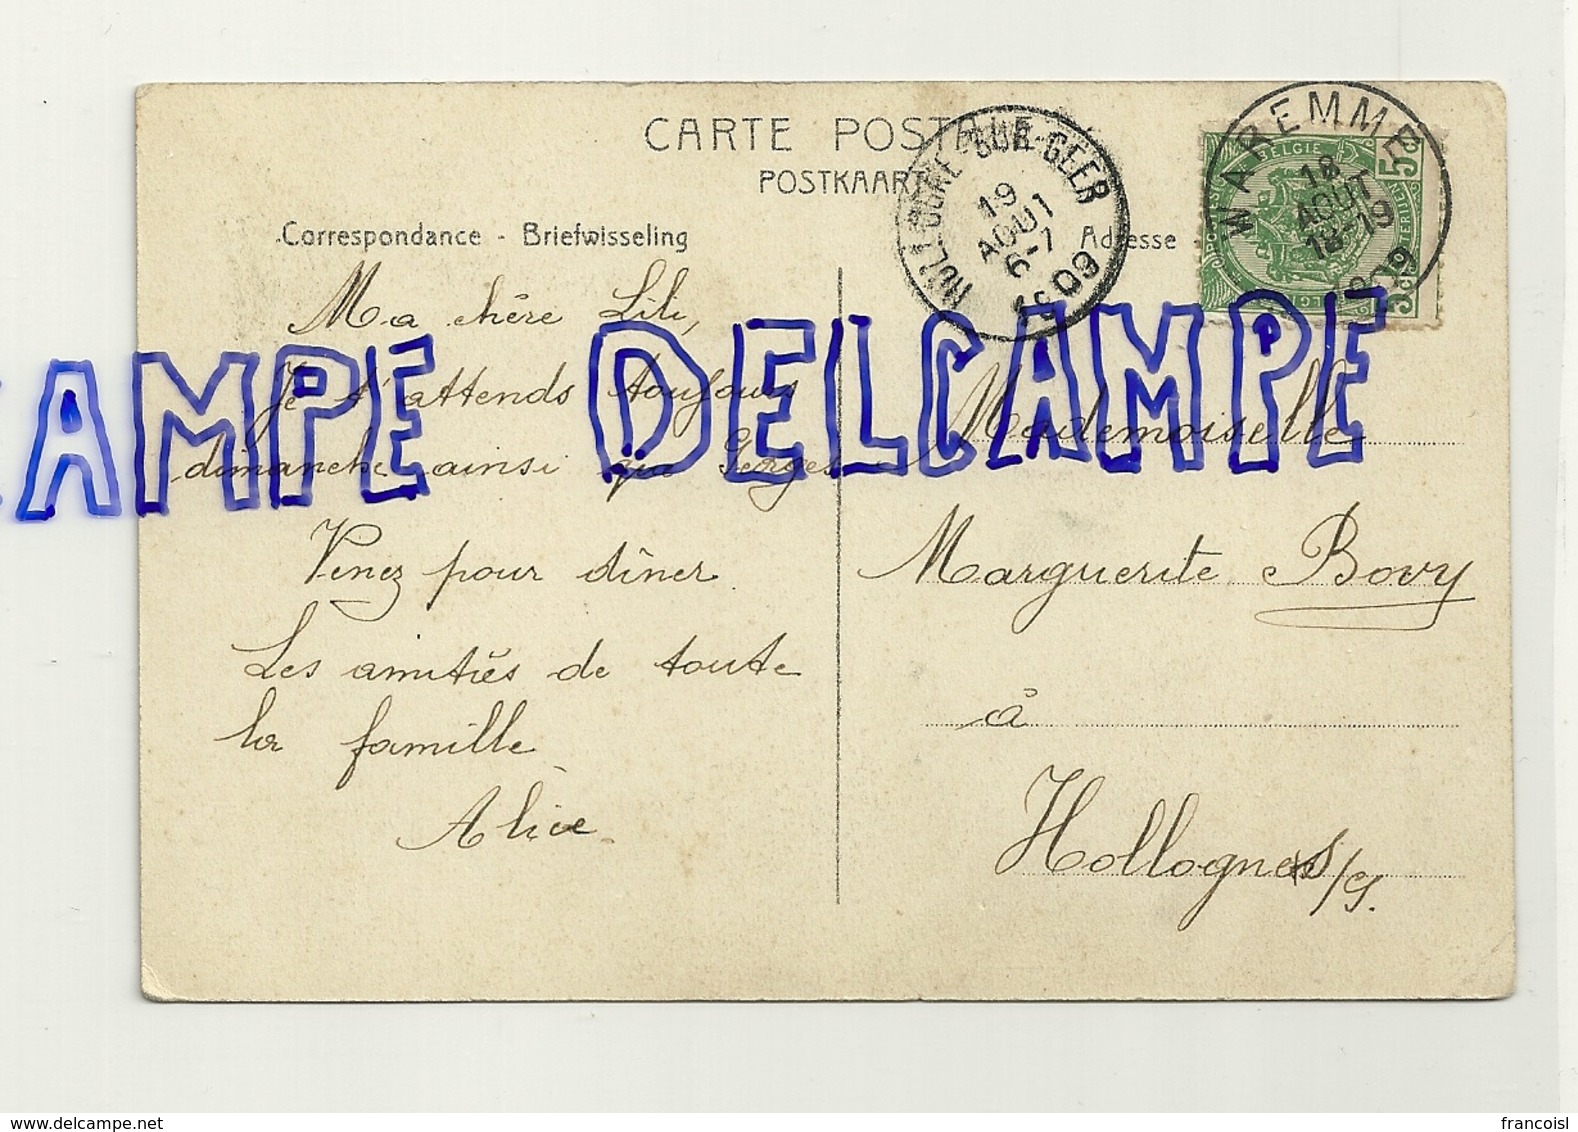 CARTE POSTALE
POSTKAART
Correspondance - Briefwisseling
Adresse -
HOLLOGNE-SUR-GEER
19
AOUT
6-7
1909
WAREMME
18
AOUT
18-19
1909
BELGIE
5 Cs
CAMPE DELCAMPE
Ma chère Lili,
Je t'attends toujours
dimanche ainsi que Georges
Venez pour dîner
Les amitiés de toute
la famille
Alice
Mademoiselle
Marguerite Bovy
à
Hollogne s/G.
www.delcampe.net
francoisl